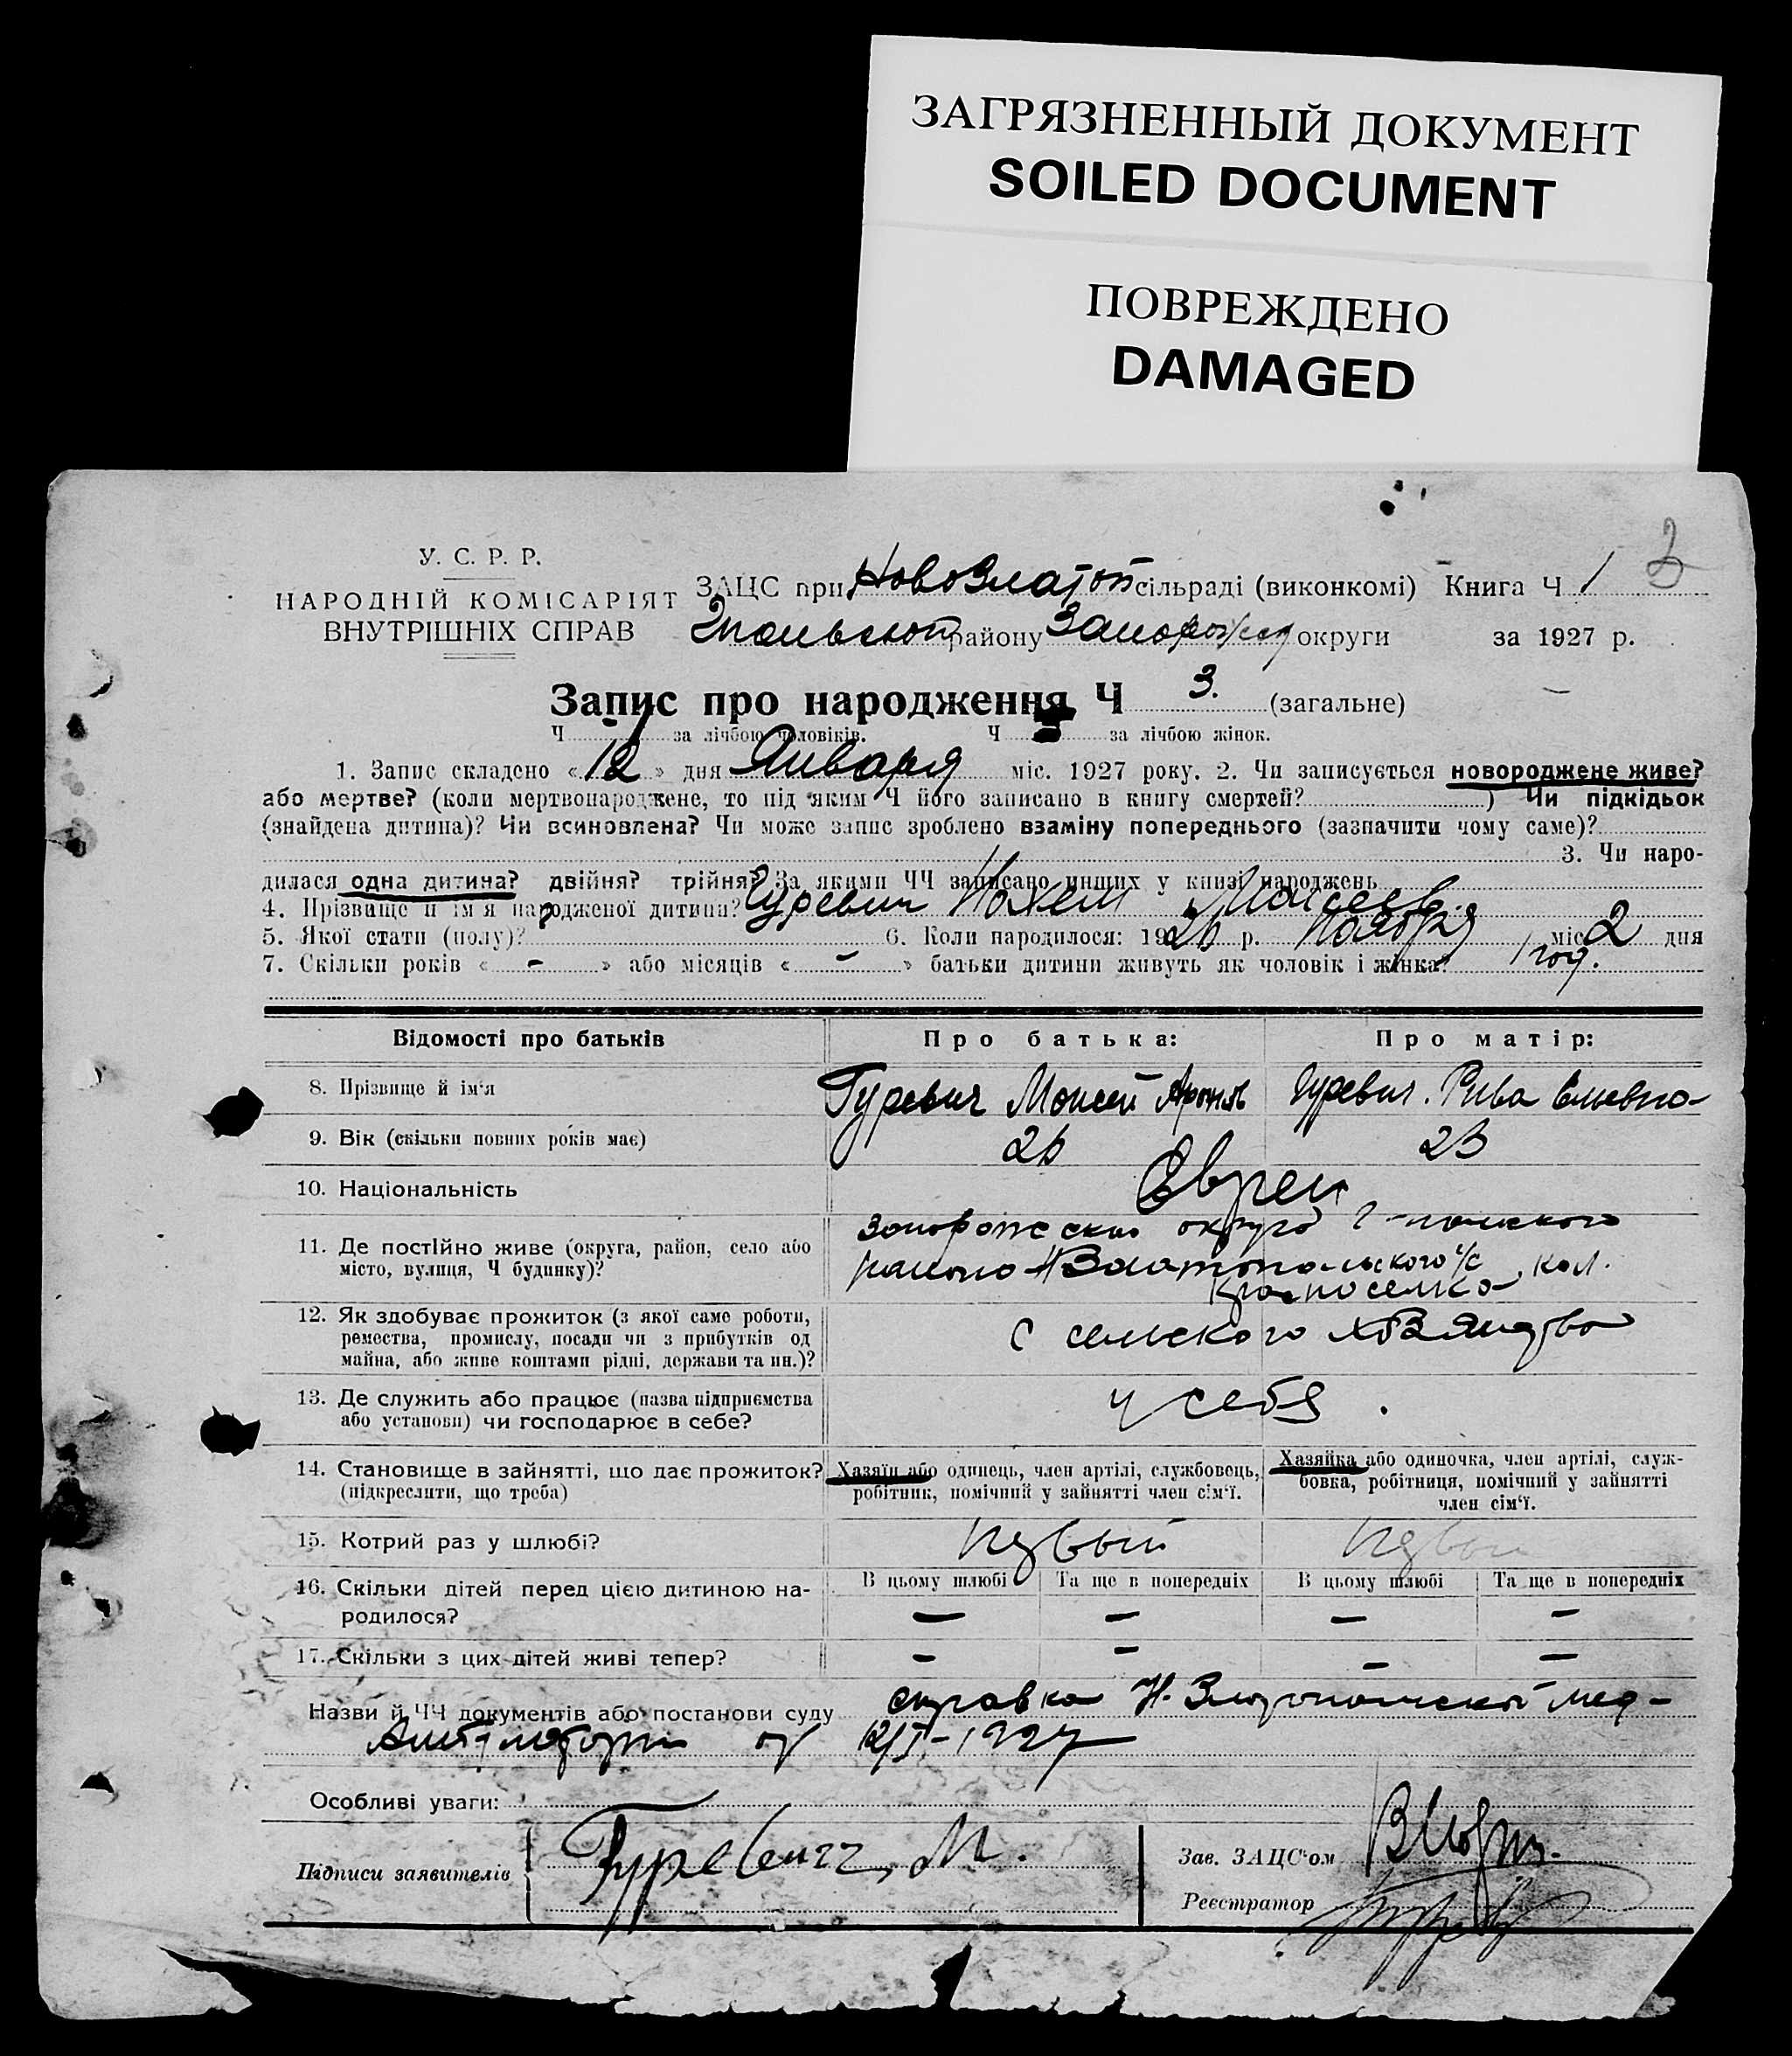 ЗАГРЯЗНЕННЫЙ ДОКУМЕНТ
SOILED DOCUMENT
ПОВРЕЖДЕНО
DAMAGED
У. С. Р. Р.
НАРОДНІЙ КОМІСАРІЯТ
ВНУТРІШНІХ СПРАВ
ЗАЦС при НовоЗлатоп сільраді (виконкомі) Книга Ч 1 3
району Запорожск округи за 1927 р.
Запис про народження Ч 3. (загальне)
Ч 1 за лічбою чоловіків. Ч за лічбою жінок.
1. Запис складено « 12 » дня Января міс. 1927 року. 2. Чи записується новороджене живе?
або мертве? (коли мертвонароджене, то під яким Ч його записано в книгу смертей? ) Чи підкідьок
(знайдена дитина)? Чи всиновлена? Чи може запис зроблено взаміну попереднього (зазначити чому саме)?
3. Чи наро-
дилася одна дитина? двійня? трійня? За якими ЧЧ записано инших у книзі народжень
4. Прізвище й ім'я народженої дитини? Гуревич Нохем Моисеев.
5. Якої стати (полу)? 6. Коли народилося: 1926 р. Ноября міс 2 дня
7. Скільки років « - » або місяців « - » батьки дитини живуть як чоловік і жінка? 1 год.
Відомості про батьків
Про батька:
Про матір:
8. Прізвище й ім'я Гуревич Моисей Аронов Гуревич. Рива Ельевна
9. Вік (скільки повних років має) 26 23
10. Національність Евреи
11. Де постійно живе (округа, район, село або
місто, вулиця, Ч будинку)?
Запорожской округа Г-польского
района Н Златопольского с/с кол.
Красноселка
12. Як здобуває прожиток (з якої саме роботи,
ремества, промислу, посади чи з прибутків од
майна, або живе коштами рідні, держави та ин.)?
С сельского хозяйства
13. Де служить або працює (назва підприємства
або установи) чи господарює в себе?
у себя.
14. Становище в зайнятті, що дає прожиток?
(підкреслити, що треба)
Хазяїн або одинець, член артілі, службовець,
робітник, помічний у зайнятті член сім'ї.
Хазяйка або одиночка, член артілі, служ-
бовка, робітниця, помічний у зайнятті
член сім'ї.
15. Котрий раз у шлюбі? первый первый
16. Скільки дітей перед цією дитиною на-
родилося?
В цьому шлюбі Та ще в попередніх В цьому шлюбі Та ще в попередніх
— — — —
17. Скільки з цих дітей живі тепер?
— — — —
Назви й ЧЧ документів або постанови суду справка Н. Златопольской мед-
Амбулатории от 12/I-1927
Особливі уваги:
Підписи заявителів Гуревич, М.
Зав. ЗАЦС'ом
Реєстратор